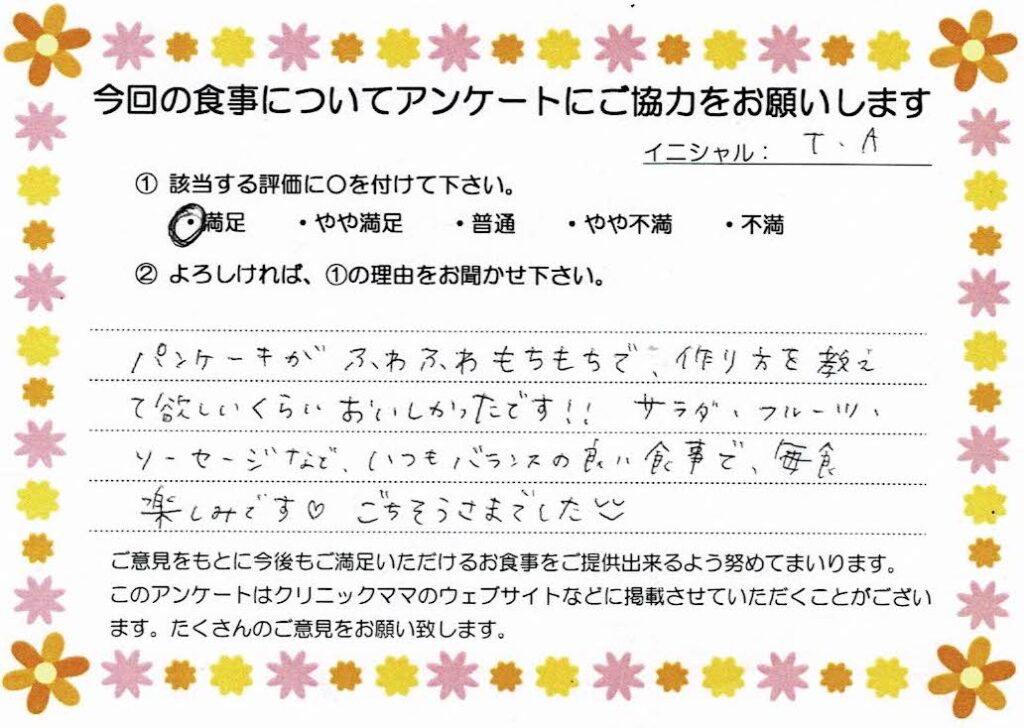 今回の食事についてアンケートにご協力をお願いします
イニシャル： T、A
① 該当する評価に〇を付けて下さい。
・満足 ・やや満足 ・普通 ・やや不満 ・不満
② よろしければ、①の理由をお聞かせ下さい。
パンケーキが ふわふわもちもちで、作り方を教え
て欲しいくらい おいしかったです!! サラダ、フルーツ、
ソーセージなど、いつもバランスの良い食事で、毎食
楽しみです♡ ごちそうさまでした
ご意見をもとに今後もご満足いただけるお食事をご提供出来るよう努めてまいります。
このアンケートはクリニックママのウェブサイトなどに掲載させていただくことがござい
ます。たくさんのご意見をお願い致します。